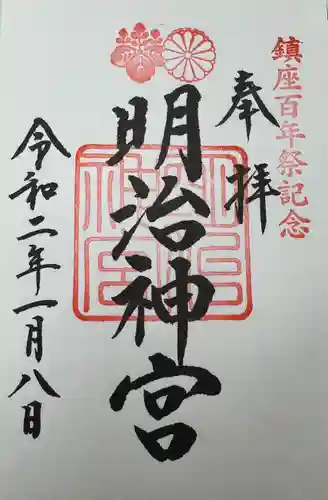 鎮座百年祭記念
奉拝
明治神宮
令和二年一月八日